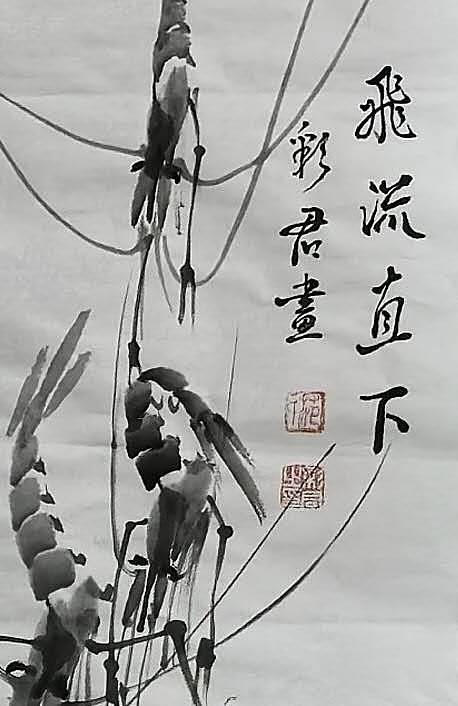 飛流直下
彩君畫